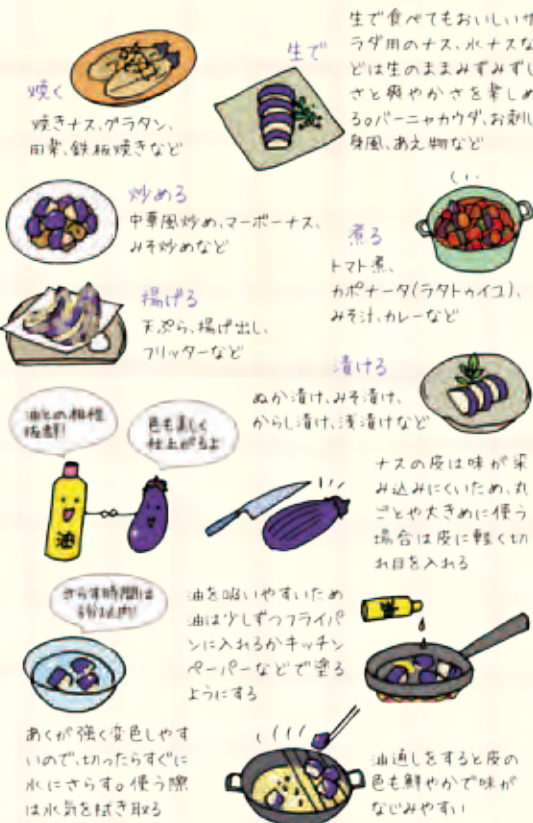 焼く
焼きナス、グラタン、
田楽、鉄板焼きなど
生で
生で食べてもおいしいサ
ラダ用のナス、水ナスな
どは生のままみずみずし
さと爽やかさを楽しめ
る。バーニャカウダ、お刺し
身風、あえ物など
炒める
中華風炒め、マーボーナス、
みそ炒めなど
煮る
トマト煮、
カポナータ(ラタトゥイユ)、
みそ汁、カレーなど
揚げる
天ぷら、揚げ出し、
フリッターなど
漬ける
ぬか漬け、みそ漬け、
からし漬け、浅漬けなど
油との相性
抜群!
色も美しく
仕上がるよ
油
ナスの皮は味が染
み込みにくいため、丸
ごとや大きめに使う
場合は皮に軽く切
れ目を入れる
さらす時間は
5分以内!
油を吸いやすいため
油は少しずつフライパ
ンに入れるかキッチン
ペーパーなどで塗る
ようにする
あくが強く変色しやす
いので、切ったらすぐに
水にさらす。使う際
は水気を拭き取る
油通しをすると皮の
色も鮮やかで味が
なじみやすい